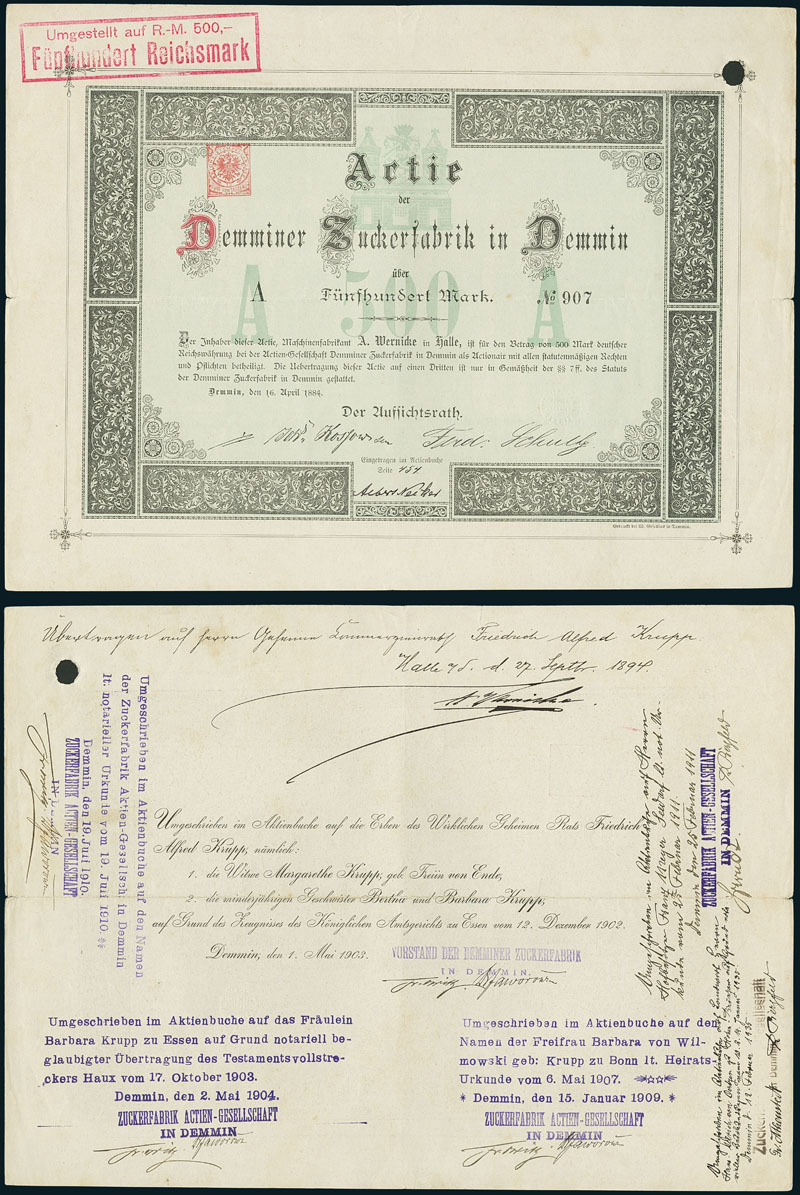 Umgestellt auf R.-M. 500,-
Fünfhundert Reichsmark
Actie
der
Demminer Zuckerfabrik in Demmin
über
A Fünfhundert Mark. No 907
A 500 A
Der Inhaber dieser Actie, Maschinenfabrikant A. Wernicke in Halle, ist für den Betrag von 500 Mark deutscher
Reichswährung bei der Actien-Gesellschaft Demminer Zuckerfabrik in Demmin als Actionair mit allen statutenmäßigen Rechten
und Pflichten betheiligt. Die Uebertragung dieser Actie auf einen Dritten ist nur in Gemäßheit der §§ 7ff. des Statuts
der Demminer Zuckerfabrik in Demmin gestattet.
Demmin, den 16. April 1884.
Der Aufsichtsrath.
Ferd. Schulz
Eingetragen im Actienbuche
Seite 151
Übertragen auf Herrn Geheimen Commerzienrath Friedrich Alfred Krupp
Halle a/S. d. 27. Septbr. 1894.
A Wernicke
Umgeschrieben im Aktienbuche auf die Erben des Wirklichen Geheimen Rats Friedrich
Alfred Krupp, nämlich:
1. die Witwe Margarethe Krupp, geb. Freiin von Ende,
2. die minderjährigen Geschwister Bertha und Barbara Krupp,
auf Grund des Zeugnisses des Königlichen Amtsgerichts zu Essen vom 12. Dezember 1902.
Demmin, den 1. Mai 1903.
VORSTAND DER DEMMINER ZUCKERFABRIK
IN DEMMIN.
Umgeschrieben im Aktienbuche auf das Fräulein
Barbara Krupp zu Essen auf Grund notariell be-
glaubigter Übertragung des Testamentsvollstre-
ckers Haux vom 17. Oktober 1903.
Demmin, den 2. Mai 1904.
ZUCKERFABRIK ACTIEN-GESELLSCHAFT
IN DEMMIN
Umgeschrieben im Aktienbuche auf den
Namen der Freifrau Barbara von Wil-
mowski geb: Krupp zu Bonn lt. Heirats-
Urkunde vom 6. Mai 1907.
* Demmin, den 15. Januar 1909. *
ZUCKERFABRIK ACTIEN-GESELLSCHAFT
IN DEMMIN
Umgeschrieben im Aktienbuche auf den Namen
der Zuckerfabrik Aktien-Gesellsch: in Demmin
lt. notarieller Urkunde vom 19. Juli 1910.
Demmin, den 19. Juli 1910.
ZUCKERFABRIK ACTIEN-GESELLSCHAFT
IN DEMMIN
Umgeschrieben im Aktienbuche auf Herrn
Hofbesitzer Franz
vom 23. Februar 1911.
Demmin den 25 Februar 1911
ZUCKERFABRIK ACTIEN-GESELLSCHAFT
IN DEMMIN
Umgeschrieben im Aktienbuche auf Landwirt Herrn
Demmin d. 12. Februar 1935